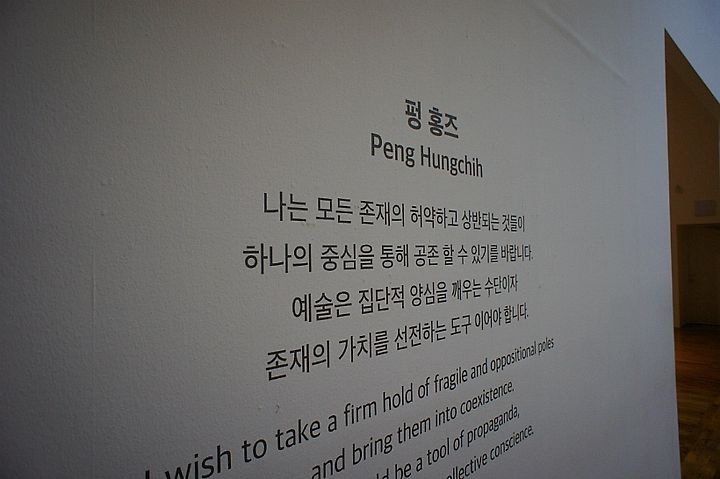 펑 홍즈
Peng Hungchih
나는 모든 존재의 허약하고 상반되는 것들이
하나의 중심을 통해 공존 할 수 있기를 바랍니다.
예술은 집단적 양심을 깨우는 수단이자
존재의 가치를 선전하는 도구 이어야 합니다.
I wish to take a firm hold of fragile and oppositional poles
and bring them into coexistence.
be a tool of propaganda,
collective conscience.